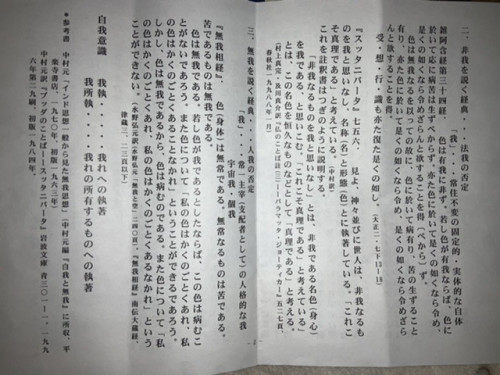 二、非我を説く経典・・・法我の否定
「我」・・・常住不変の固定的、実体的な自体
雑阿含経第三十四経 色は有我に非ず。若し色が有我ならば、色に
於いて応に病苦は生ずべからず。亦た色に於いて、是くの如くなら令め、
有り、亦た色に於いて是くの如くなら令め、是くの如くなら令めざら
んと欲することを得。
受・想・行・識も亦た復た是くの如し。
（大正二・七下13―18）
『スッタニパータ』七五六 見よ、神々並びに世人は、非我なるも
のを我と思いなし、名称（名）と形態（色）とに執著している。「これこ
そ真理である」と考えている。（中村訳）
これを註釈書はつぎのように説明する。
「非我なるものを我と思いなし」とは、非我である名色（身心）
を我である、と思いこむ。「これこそ真理である」と考えている」
とは、この名色を恒久なものなどとして「真理である」と考える。
（村上真完・及川真介訳『仏のことば註(三)―パラマッタ・ジョーティカー』五二七頁、
春秋社一九八八年一月）
三、無我を説く経典 「我」・・・人我の否定
「我」・・・常一主宰（支配者として）の人格的な我
宇宙我、個我
『無我相経』、色（身体）は無常である、無常なるものは苦である、
苦であるものは無我である。
色は無我である。若し色が我であるとしたならば、この色は病むこ
とがないであろう。また色について「私の色はかくのごとくあれ、私
の色はかくのごとくあることなかれ」ということができるであろう。
しかし、色は無我であるから、色は病むのである。また色について「私
の色はかくのごとくあれ、私の色はかくのごとくあるなかれ」という
ことができない。
自我意識 我執・・・・・我れへの執著
我所執・・・・我れの所有するものへの執著
＊参考書 中村元「インド思想一般から見た無我思想」（中村元編『自我と無我』に所収、平
楽寺書店、
中村元『ブッダのことば―スッタニパータ』岩波文庫 青三〇一―一、一九九
六年第二九刷、初版一九八四年。